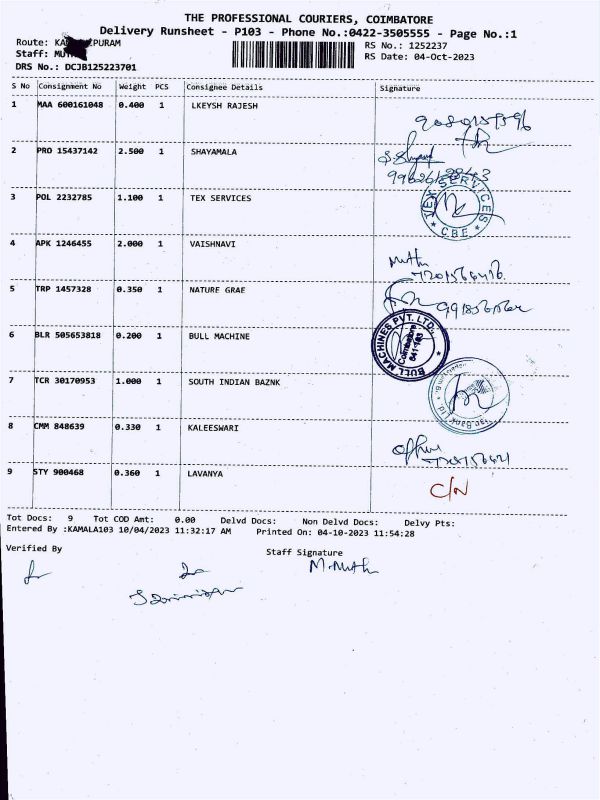 THE PROFESSIONAL COURIERS, COIMBATORE
Delivery Runsheet - P103 - Phone No.:0422-3505555 - Page No.:1
Route: KA PURAM
RS No.: 1252237
Staff: MU
RS Date: 04-Oct-2023
DRS No.: DCJB125223701
S No Consignment No Weight PCS Consignee Details Signature
1 MAA 600161048 0.400 1 LKEYSH RAJESH
2 PRO 15437142 2.500 1 SHAYAMALA
3 POL 2232785 1.100 1 TEX SERVICES
KEY SERVICES * CBE *
4 APK 1246455 2.000 1 VAISHNAVI
Muthu
5 TRP 1457328 0.350 1 NATURE GRAE
6 BLR 505653818 0.200 1 BULL MACHINE
BULL MACHINES PVT. LTD.
Coimbatore
641 103
7 TCR 30170953 1.000 1 SOUTH INDIAN BAZNK
8 CMM 848639 0.330 1 KALEESWARI
9 STY 900468 0.360 1 LAVANYA
C/N
Tot Docs: 9 Tot COD Amt: 0.00 Delvd Docs: Non Delvd Docs: Delvy Pts:
Entered By :KAMALA103 10/04/2023 11:32:17 AM Printed On: 04-10-2023 11:54:28
Verified By
Staff Signature
M. Muthu